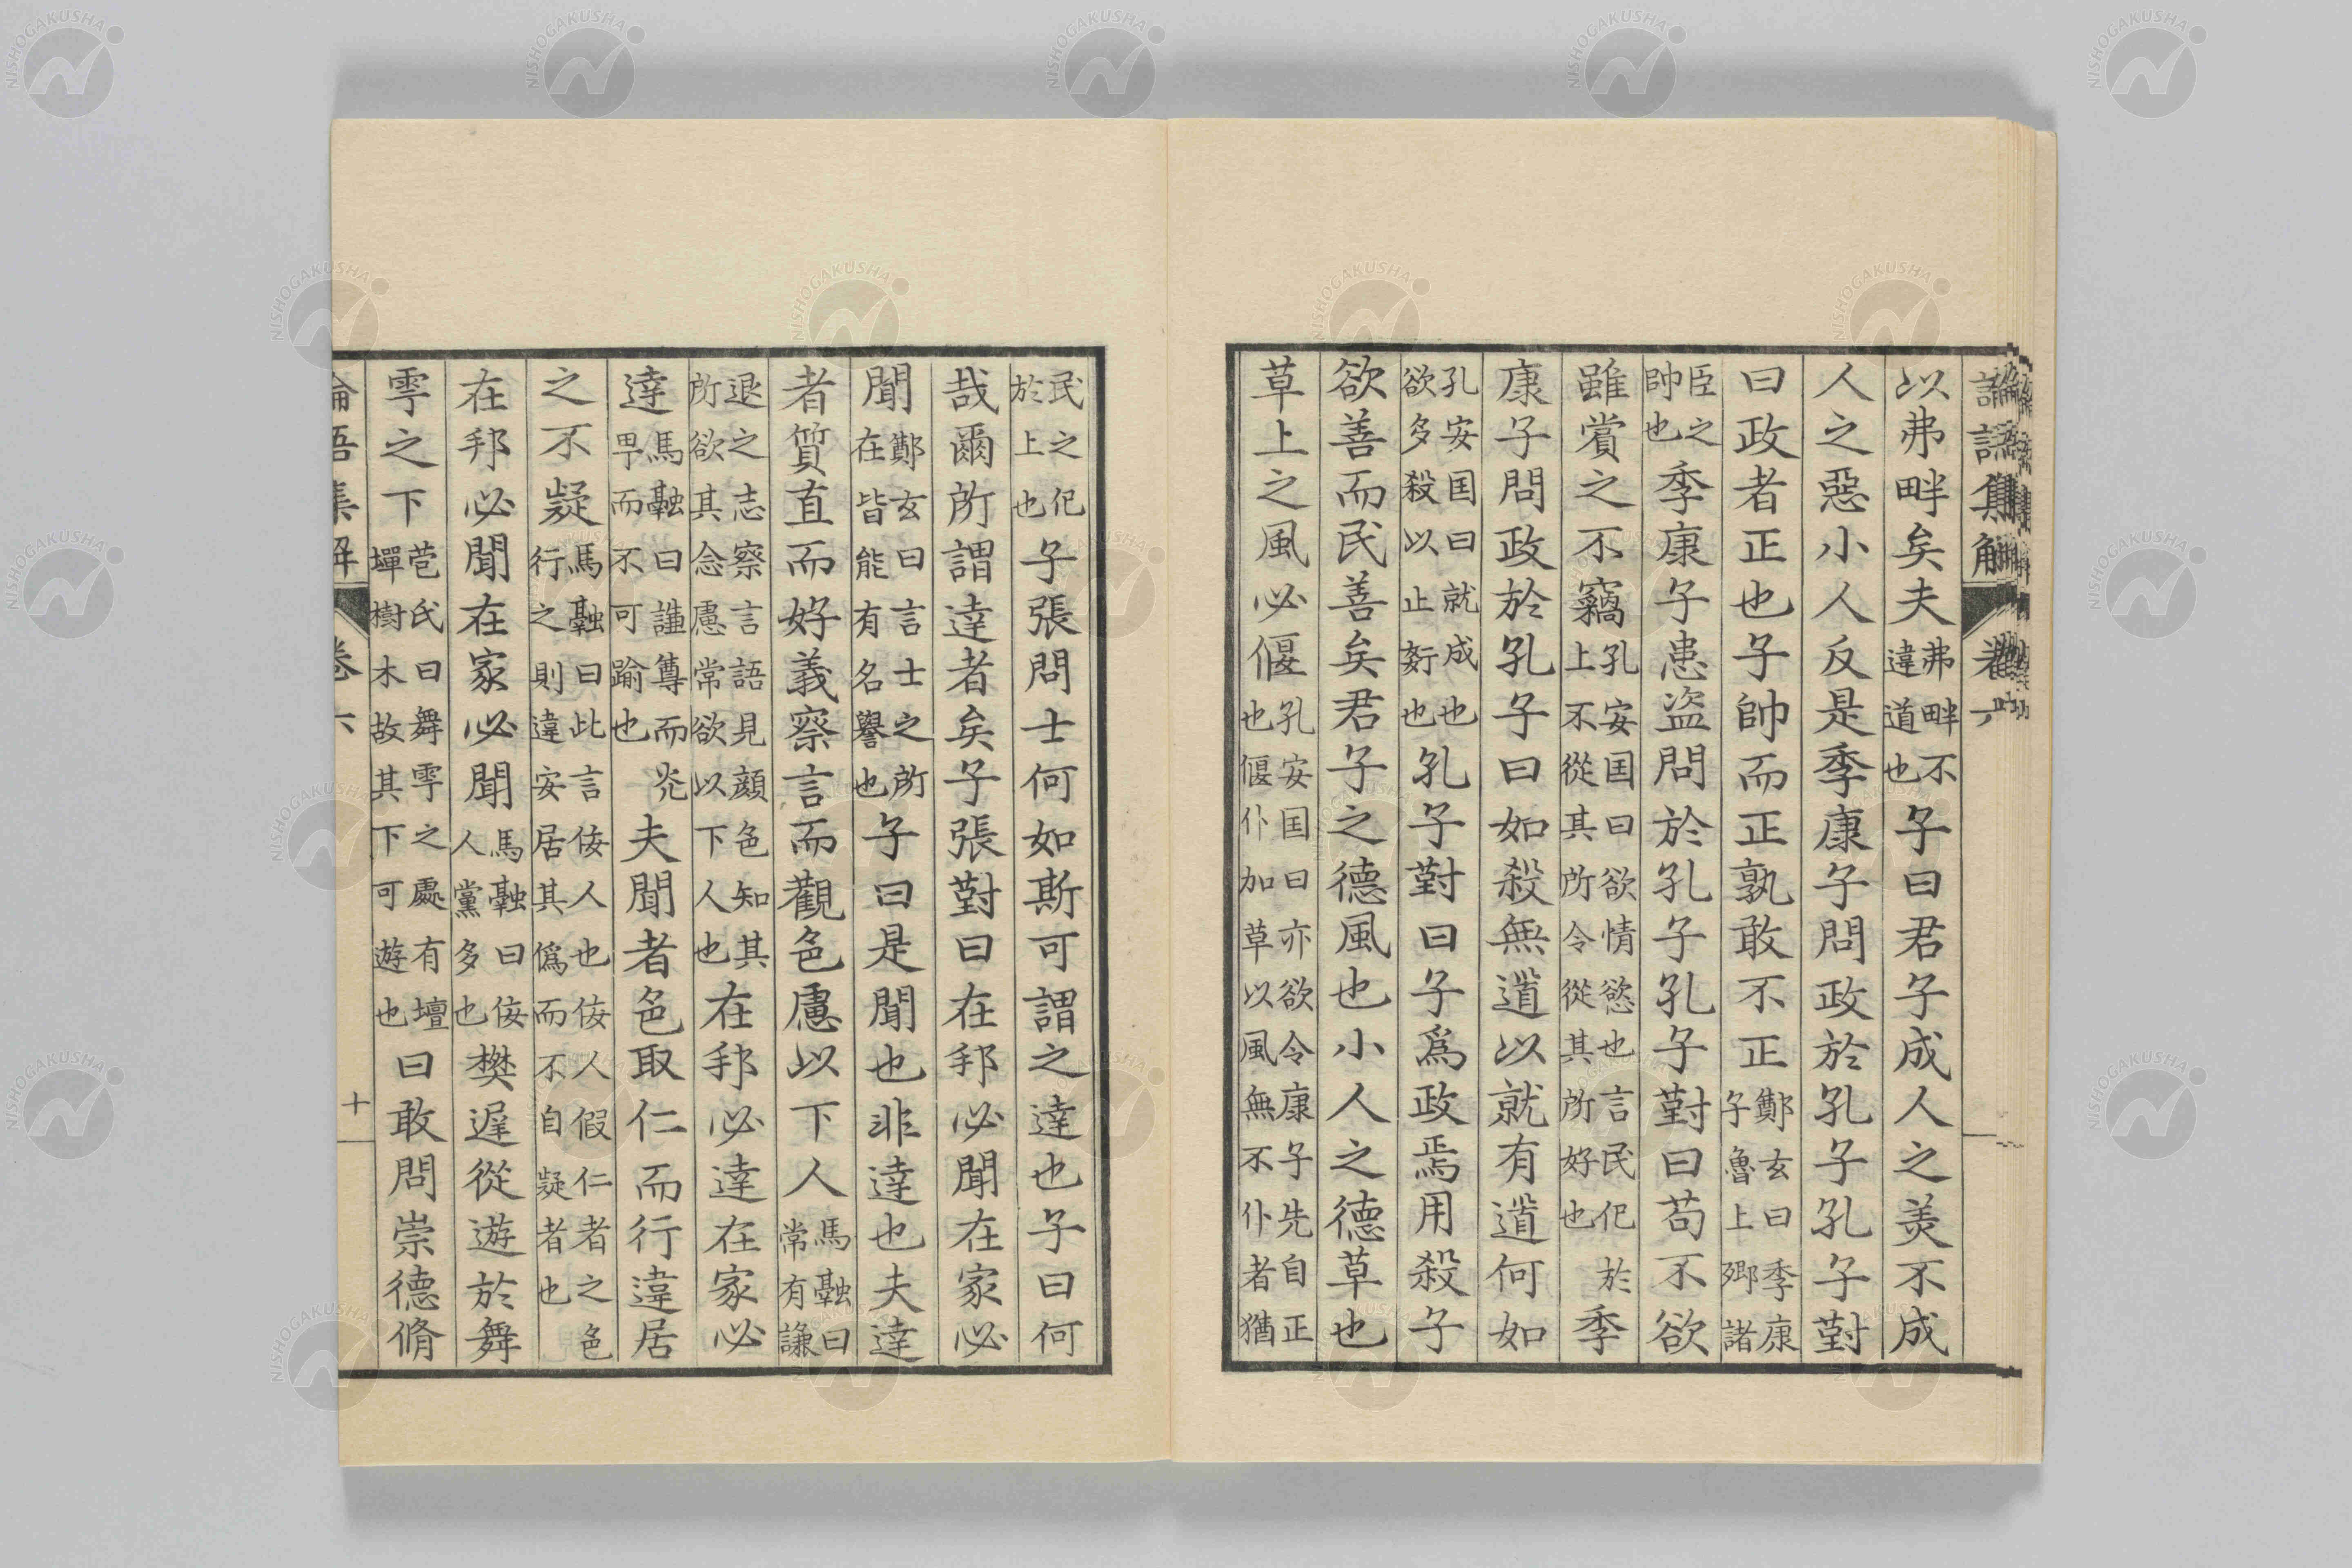 以弗畔矣夫弗畔不違道也子曰君子成人之美不成
人之惡小人反是季康子問政於孔子孔子對
曰政者正也子帥而正孰敢不正鄭玄曰季康子魯上卿諸
臣之帥也季康子患盗問於孔子孔子對曰苟不欲
雖賞之不竊孔安国曰欲情慾也言民化於上不從其所令從其所好也季
康子問政於孔子曰如殺無道以就有道何如
孔安国曰就成也欲多殺以止姧也孔子對曰子爲政焉用殺子
欲善而民善矣君子之德風也小人之德草也
草上之風必偃孔安国曰亦欲令康子先自正也偃仆加草以風無不仆者猶
民之化於上也子張問士何如斯可謂之達也子曰何
哉爾所謂達者矣子張對曰在邦必聞在家必
聞鄭玄曰言士之所在皆能有名譽也子曰是聞也非達也夫達
者質直而好義察言而觀色慮以下人馬融曰常有謙
退之志察言語見顔色知其所欲其念慮常欲以下人也在邦必達在家必
達馬融曰謙尊而光卑而不可踰也夫聞者色取仁而行違居
之不疑馬融曰此言佞人也佞人假仁者之色行之則違安居其僞而不自疑者也
在邦必聞在家必聞馬融曰佞人黨多也樊遟從遊於舞
雩之下苞氏曰舞雩之處有壇墠樹木故其下可遊也曰敢問崇德脩
論語集解 卷六 十